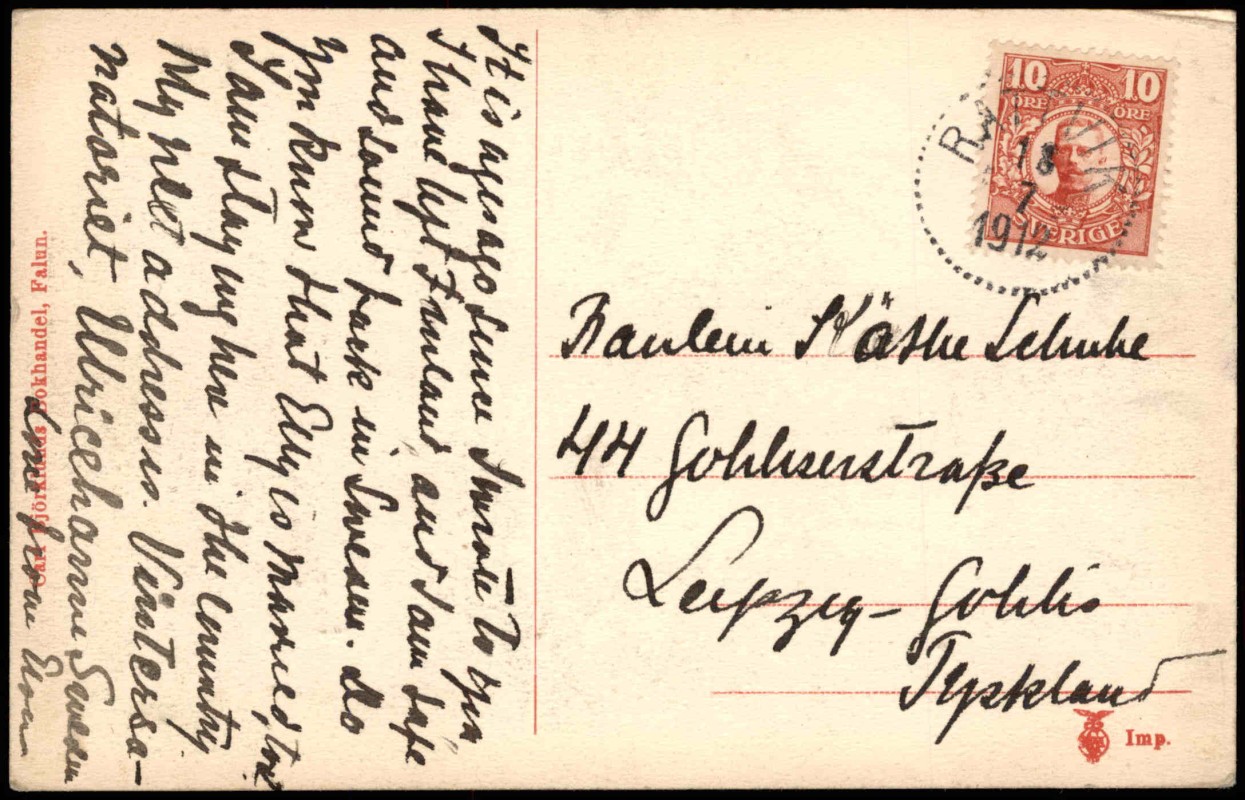 It is ages ago since I wrote to you
I have left Finland and I am safe
and sound back in Sweden. Do
you know that Elly is married, too?
I am staying here in the country
My next address is. Vintersa-
natoriet, Ulricehamn Sweden
Love from
Carl Björklunds Bokhandel, Falun.
10 10
ÖRE ÖRE
SVERIGE
RÄTTVIK
18
7
1912
Fräulein Käthe Schuhe
44 Gohliserstraße
Leipzig - Gohlis
Tyskland
Imp.